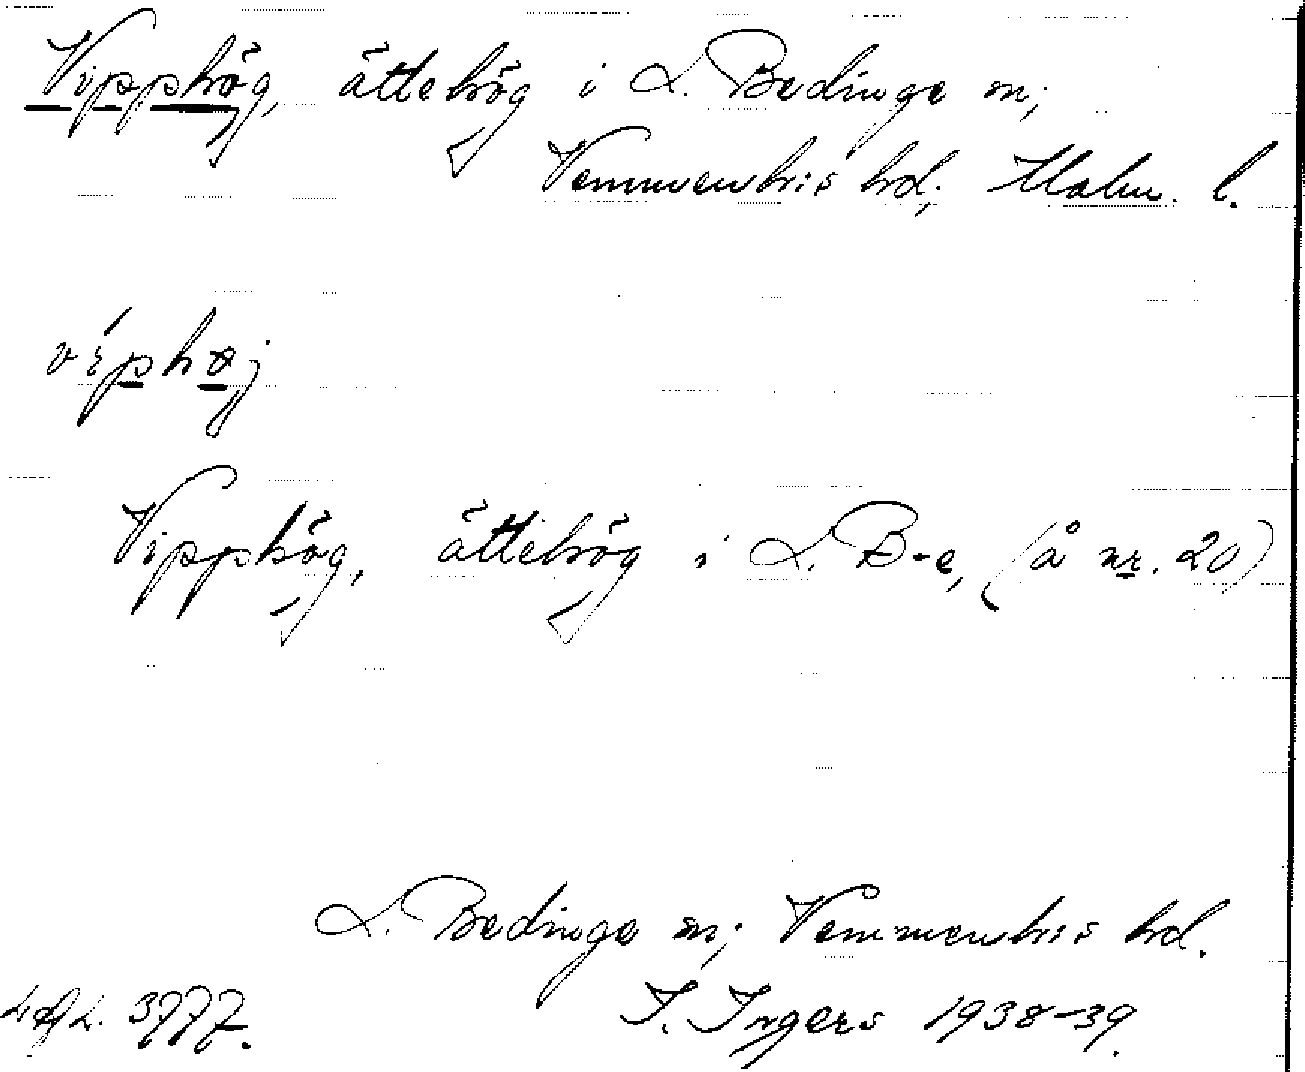 Vipphög, ättehög i L. Bedinge sn;
Vemmenhös hd; Malm. l.
vı́phøj
Vipphög, ättehög i L. B-e, (å nr. 20)
L. Bedinge sn; Vemmenhös hd.
3777. I. Ingers 1938-39.